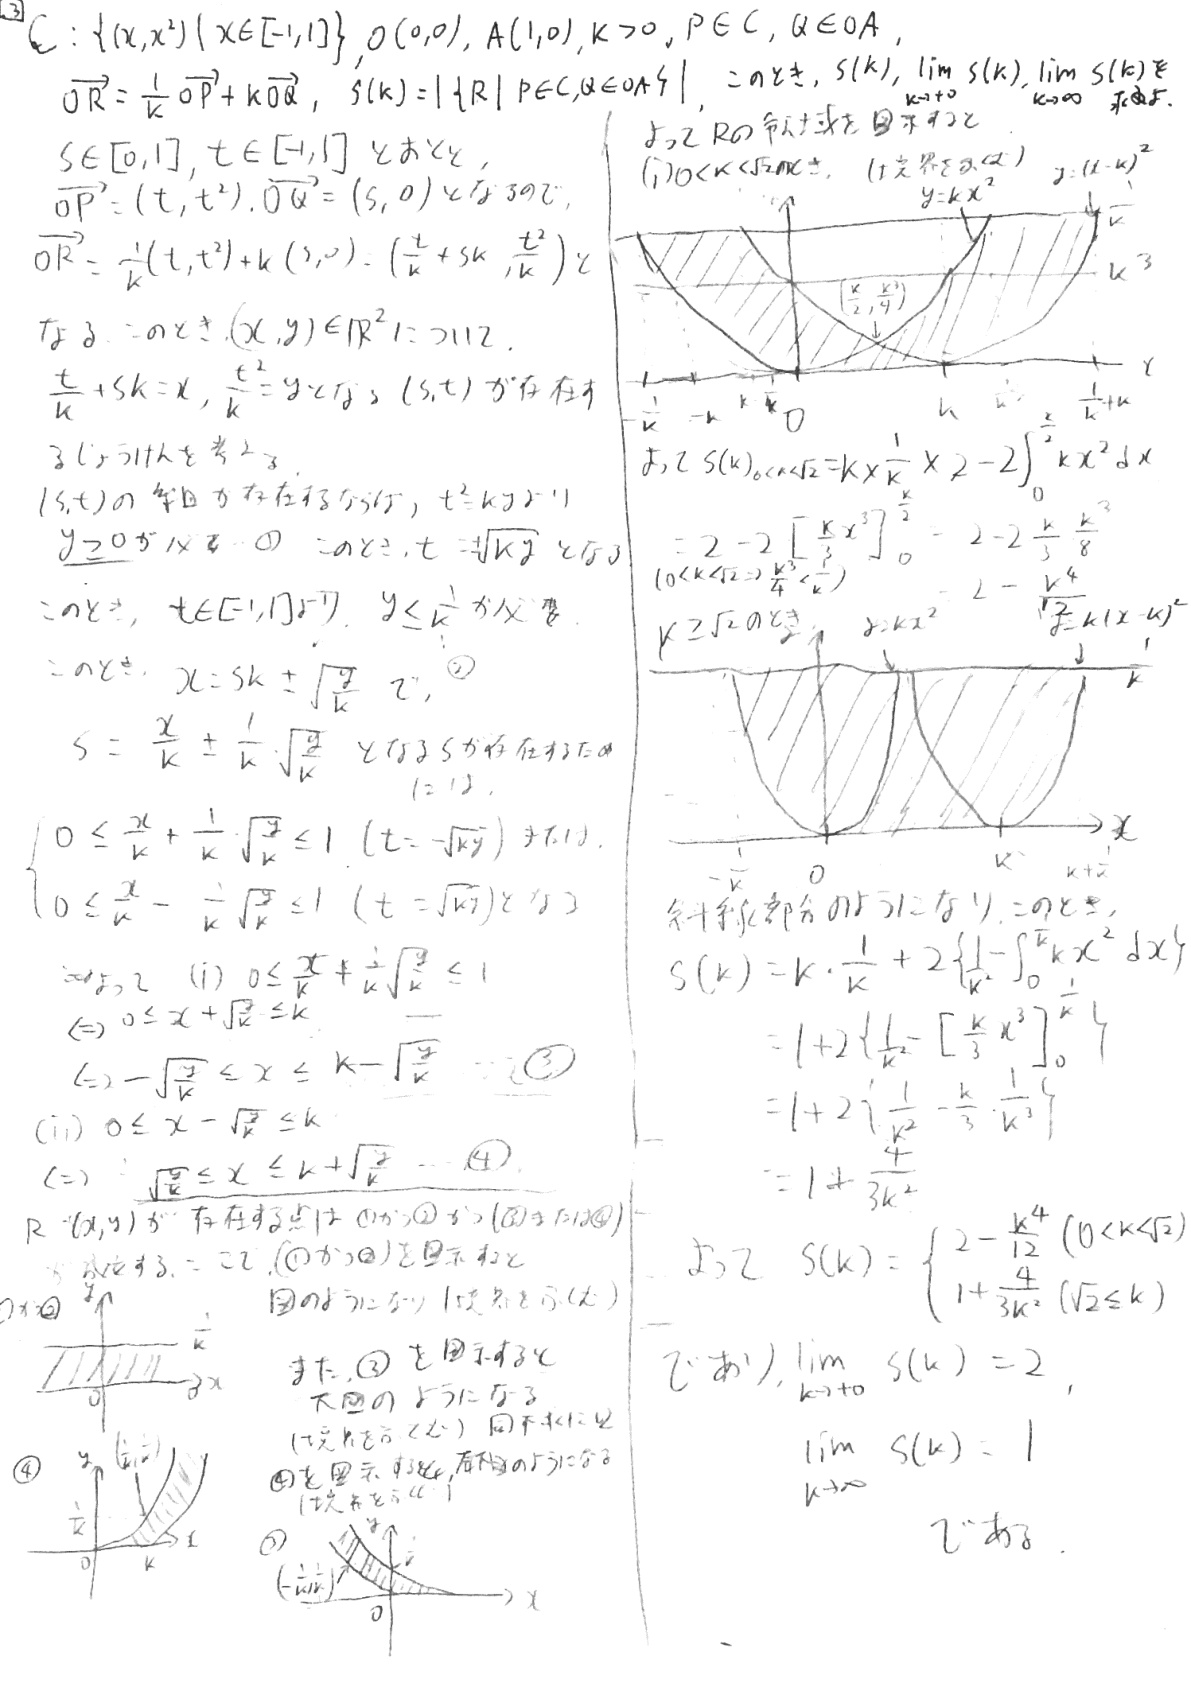 3
C : {(x, x²) | x∈[-1,1]}, O(0,0), A(1,0), k>0, P∈C, Q∈OA,
OR = 1/k OP + kOQ, S(k) = |{R | P∈C, Q∈OA}|, このとき, S(k), lim_{k→+0} S(k), lim_{k→∞} S(k)を求めよ.
s∈[0,1], t∈[-1,1] とおくと,
OP = (t, t²), OQ = (s, 0) となるので,
OR = 1/k (t, t²) + k(s, 0) = (t/k + sk, t²/k) と
なる. このとき, (x,y)∈ℝ² について,
t/k + sk = x, t²/k = y となる (s,t) が存在す
るじょうけんを考える.
(s,t)の 組 が存在するならば, t² = ky より
y ≥ 0 が 必要 … ① このとき, t = ±√ky となる
このとき, t∈[-1,1]より, y ≤ 1/k が必要
… ②
このとき, x = sk ± √(y/k) で,
s = x/k ± 1/k √(y/k) となるsが存在するため
には,
0 ≤ x/k + 1/k √(y/k) ≤ 1 (t = -√ky) または,
0 ≤ x/k - 1/k √(y/k) ≤ 1 (t = √ky) となる
よって (i) 0 ≤ x/k + 1/k √(y/k) ≤ 1
⇔ 0 ≤ x + √(y/k) ≤ k
⇔ -√(y/k) ≤ x ≤ k - √(y/k) … ③
(ii) 0 ≤ x - √(y/k) ≤ k
⇔ √(y/k) ≤ x ≤ k + √(y/k) … ④
R (x,y)が 存在する点は ①かつ②かつ(③または④)
が成立する. ここで, (①かつ②)を図示すると
図のようになり (境界をふくむ)
①かつ②
y
1/k
0
x
また, ③ を図示すると
下図のようになる
(境界をふくむ) 同様に
④を図示すると, 左図のようになる
(境界をふくむ)
④
y
1/k
0
k
x
③
y
(-1/k, 1/k)
0
x
よって Rの領域を図示すると
(i) 0<k<√2のとき, (境界をふくむ) y=(x-k)²
y=kx²
1/k
k³
(k/2, k³/4)
x
-1/k
-k
0
k
1/k + k
よって S(k)_{0<k<√2} = k × 1/k × 2 - 2∫₀^{k/2} kx² dx
= 2 - 2 [k/3 x³]₀^{k/2} = 2 - 2 k/3 k³/8
(0<k<√2 ⇒ k³/4 < 1/k)
= 2 - k⁴/12
k ≥ √2 のとき, y=kx² y=k(x-k)²
1/k
x
-1/k
0
k
k+1/k
斜線部分のようになり, このとき,
S(k) = k · 1/k + 2{1/k² - ∫₀^{1/k} kx² dx}
= 1 + 2{1/k² - [k/3 x³]₀^{1/k}}
= 1 + 2{1/k² - k/3 · 1/k³}
= 1 + 4/3k²
よって S(k) = { 2 - k⁴/12 (0<k<√2)
1 + 4/3k² (√2 ≤ k)
であり, lim_{k→+0} S(k) = 2,
lim_{k→∞} S(k) = 1
である.